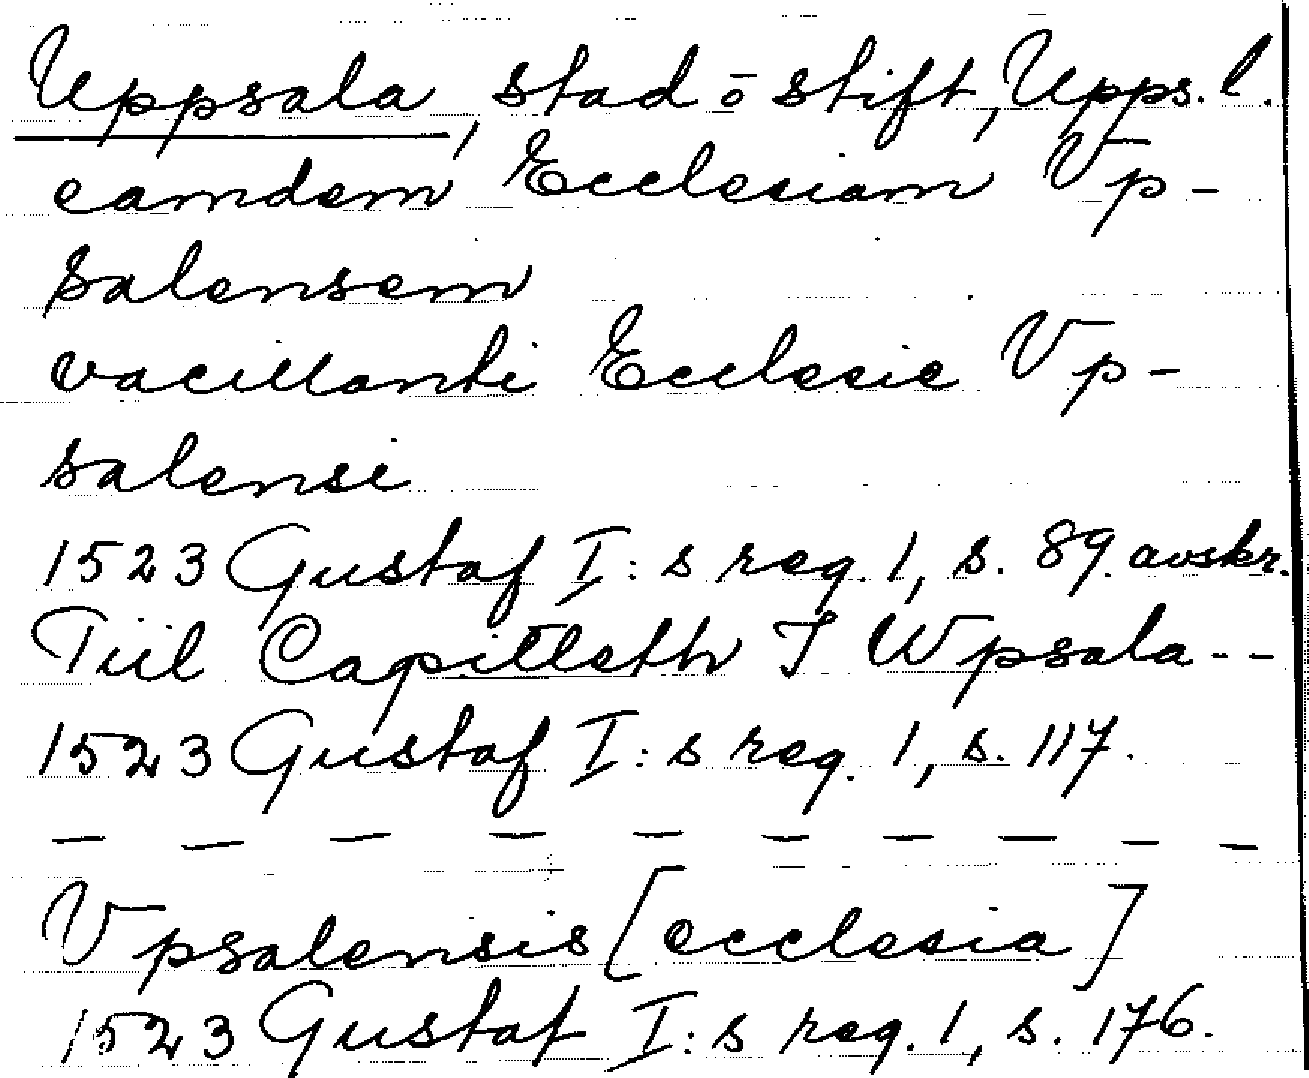 Uppsala, stad o stift, Upps. l.
eamdem Ecclesiam Vp-
salensem
vacillanti Ecclesie Vp-
salensi
1523 Gustaf I:s reg. 1, s. 89. avskr.
Tiil Capitleth I Wpsala--
1523 Gustaf I:s reg. 1, s. 117.
— — — — — — — — — —
Vpsalensis [ecclesia]
1523 Gustaf I:s reg. 1, s. 176.